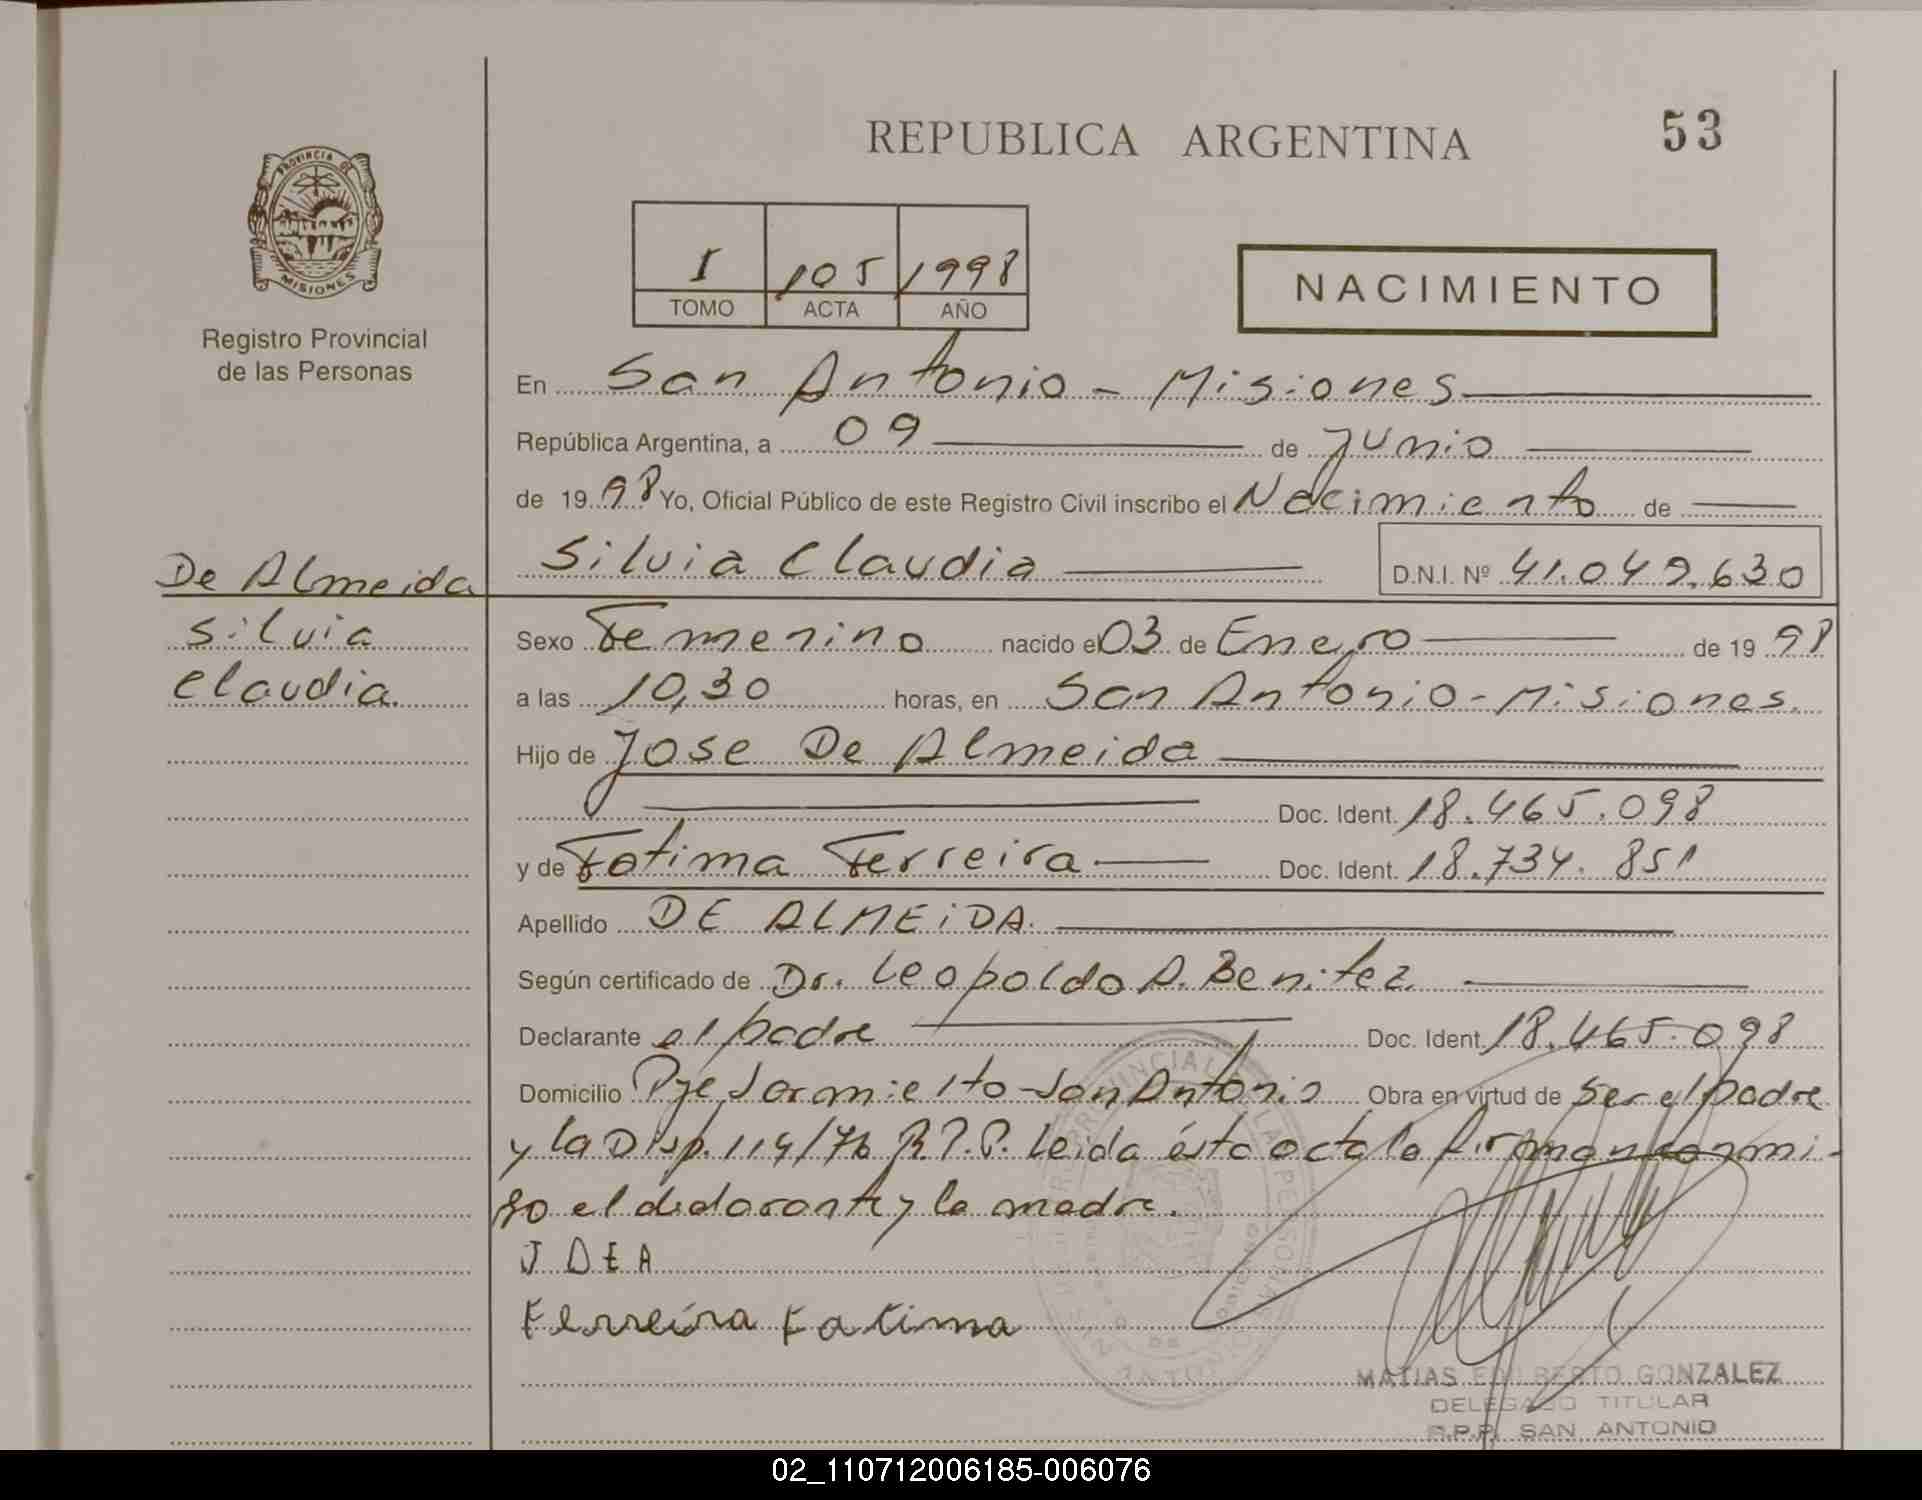 REPUBLICA ARGENTINA
53
PROVINCIA DE
MISIONES
Registro Provincial
de las Personas
I 105 1998
TOMO ACTA AÑO
NACIMIENTO
En San Antonio - Misiones
República Argentina, a 09 de Junio
de 19 98 Yo, Oficial Público de este Registro Civil inscribo el Nacimiento de
Silvia Claudia D.N.I. Nº 41.049.630
De Almeida
Silvia
Claudia.
Sexo Femenino nacido el 03 de Enero de 19 98
a las 10,30 horas, en San Antonio - Misiones.
Hijo de Jose De Almeida
Doc. Ident. 18.465.098
y de Fatima Ferreira Doc. Ident. 18.734.851
Apellido DE ALMEIDA.
Según certificado de Dr. Leopoldo A. Benitez
Declarante el padre Doc. Ident. 18.465.098
Domicilio Pje Sarmiento - San Antonio Obra en virtud de ser el padre
y la Disp. 114/76 R.P.P. Leida ésta acta la firman conmi-
go el declarante y la madre.
J D E A
Ferreira Fatima
MATIAS EDILBERTO GONZALEZ
DELEGADO TITULAR
R.P.P. SAN ANTONIO
02_110712006185-006076